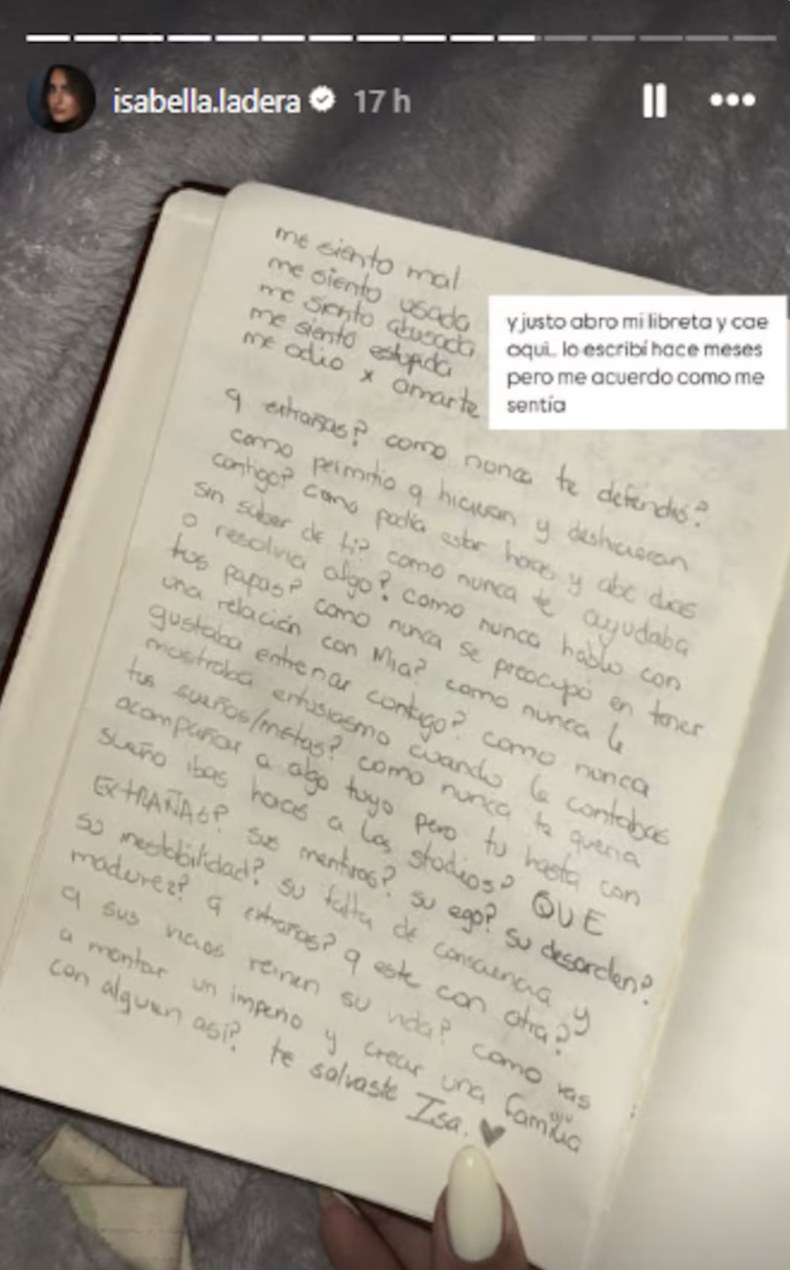 isabella.ladera 17 h
me siento mal
me siento usada
me siento abusada
me siento estupida
me odio x amarte
y justo abro mi libreta y cae
aqui.. lo escribí hace meses
pero me acuerdo como me
sentía
q extrañas? como nunca te defendió?
como permitio q hicieran y deshicieran
contigo? como podía estar horas y abc dias
sin saber de ti? como nunca te ayudaba
o resolvia algo? como nunca hablo con
tus papas? como nunca se preocupó en tener
una relación con Mia? como nunca le
gustaba entrenar contigo? como nunca
mostraba entusiasmo cuando le contabas
tus sueños/metas? como nunca te queria
acompañar a algo tuyo pero tu hasta con
sueño ibas hacas a los studios? QUE
EXTRAÑAS? sus mentiras? su ego? su desorden?
su inestabilidad? su falta de consciencia y
madurez? q extrañas? q este con otra?
q sus vicios reinen su vida? como vas
a montar un imperio y crear una familia
con alguien asi? te salvaste Isa. ♥